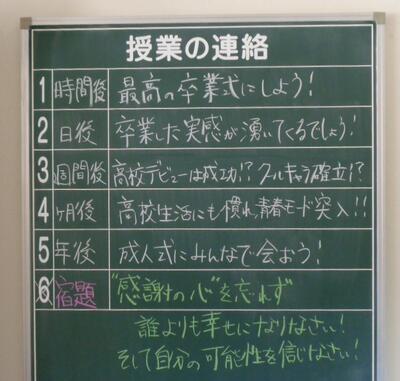 授業の連絡
1 時間後 最高の卒業式にしよう!
2 日後 卒業した実感が湧いてくるでしょう!
3 週間後 高校デビューは成功!? クルキャラ確立!?
4 ヶ月後 高校生活にも慣れ、青春モード突入!!
5 年後 成人式にみんなで会おう!
6 宿題 "感謝の心"を忘れず
誰よりも幸せになりなさい!
そして自分の可能性を信じなさい!